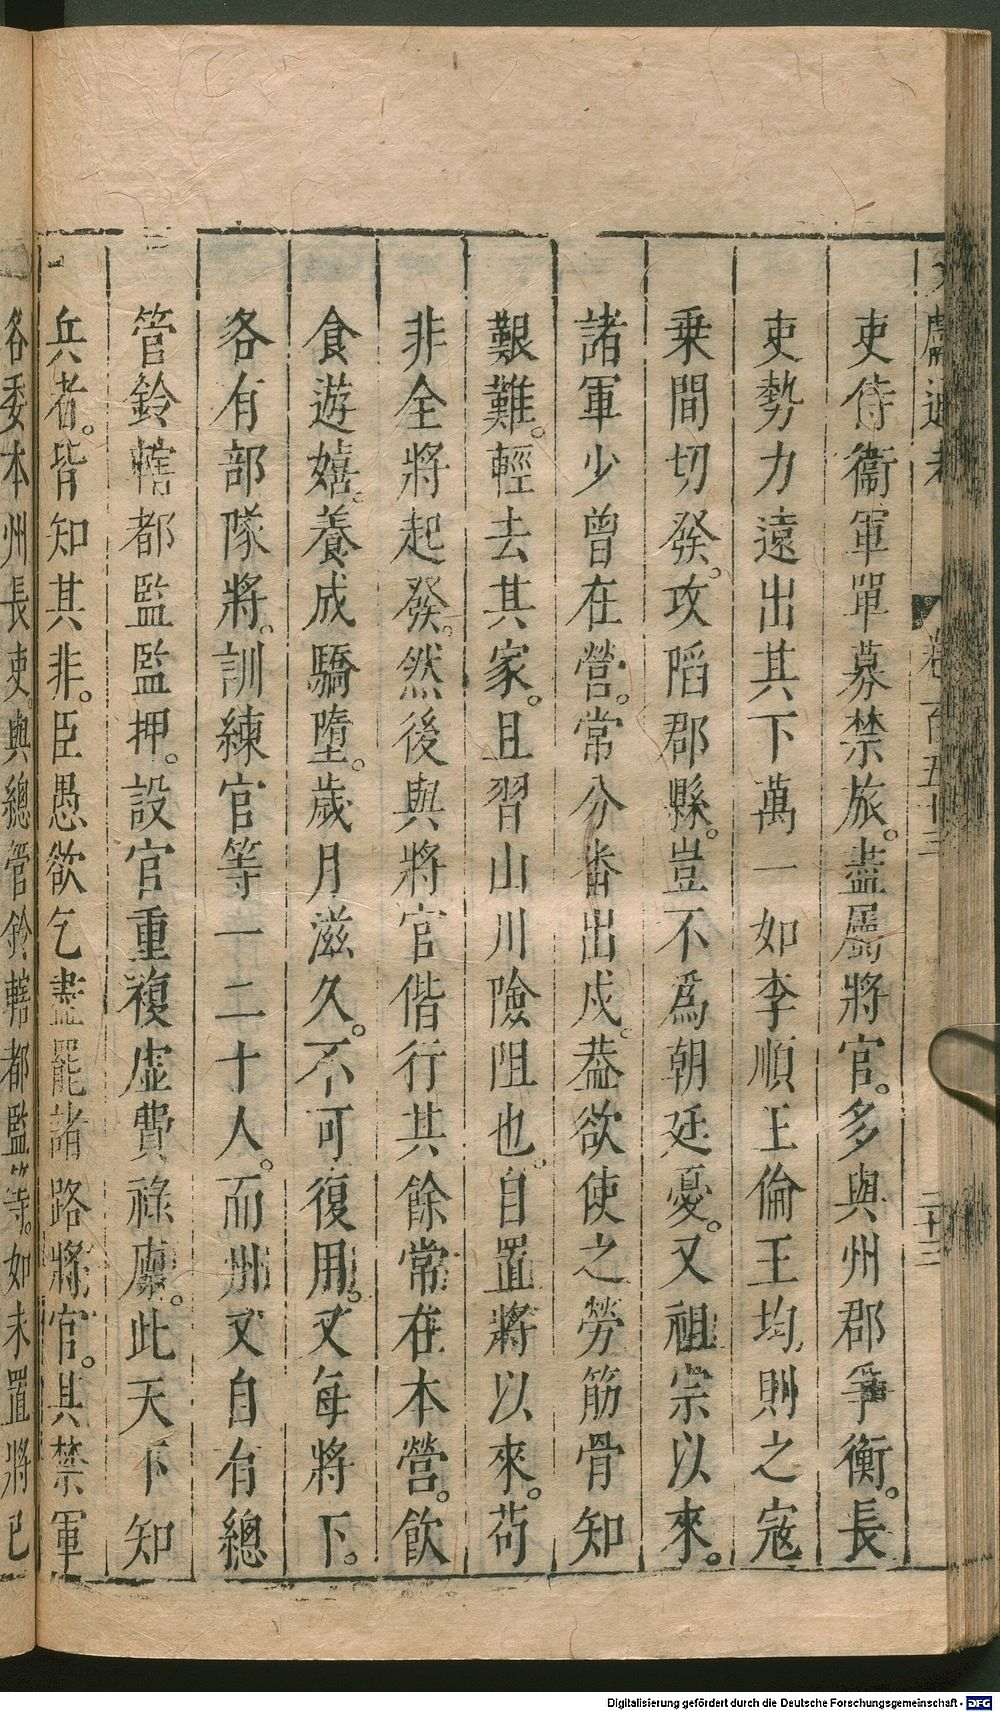 文獻通考 卷一百五十三 二十三
吏侍衞軍單募禁旅。盡屬將官。多與州郡爭衡。長
吏勢力遠出其下萬一如李順王倫王均則之寇
乗間切發。攻䧟郡縣。豈不爲朝廷憂。又祖宗以來。
諸軍少曾在營。常分番出戍。葢欲使之勞筋骨知
艱難。輕去其家。且習山川險阻也。自置將以來。苟
非全將起發。然後與將官偕行其餘常在本營。飲
食遊嬉。養成驕墮。歲月滋久。不可復用。又每將下。
各有部隊將。訓練官等一二十人。而州又自有總
管鈐轄都監監押。設官重複虛費祿廪。此天下知
兵者。皆知其非。臣愚欲乞盡罷諸路將官。其禁軍
各委本州長吏。與總管鈐轄都監等。如未置將已
Digitalisierung gefördert durch die Deutsche Forschungsgemeinschaft - DFG